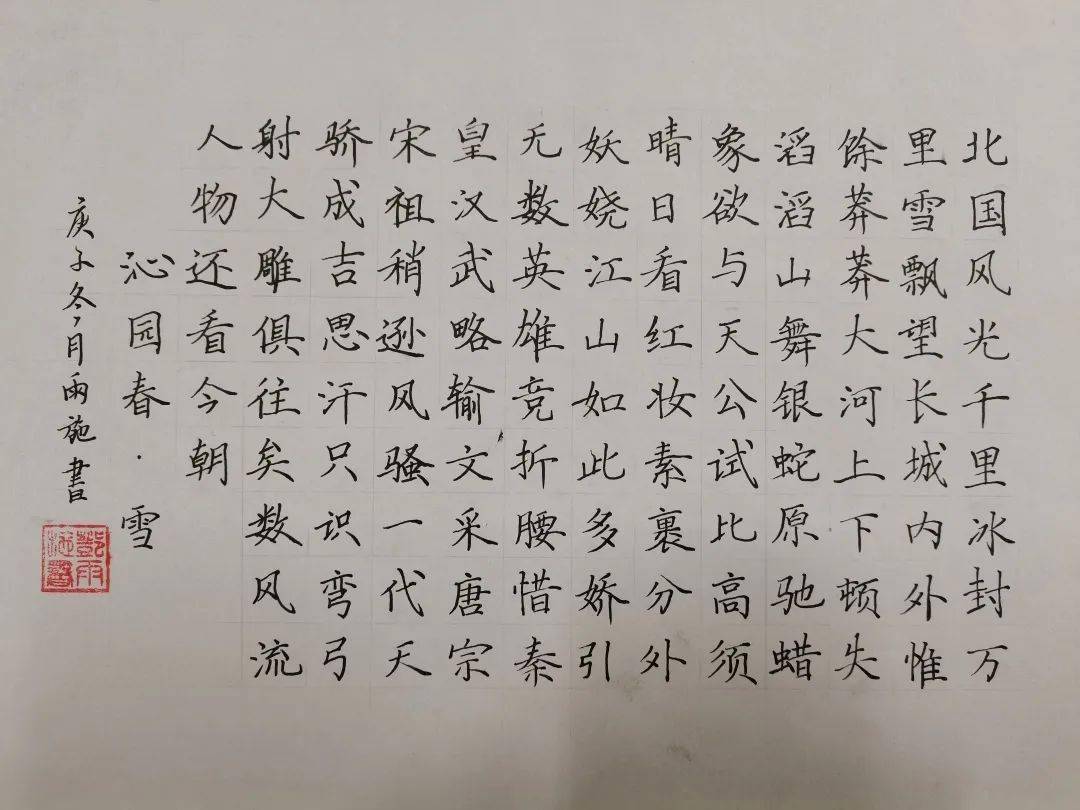 北国风光千里冰封万
里雪飘望长城内外惟
馀莽莽大河上下顿失
滔滔山舞银蛇原驰蜡
象欲与天公试比高须
晴日看红妆素裹分外
妖娆江山如此多娇引
无数英雄竞折腰惜秦
皇汉武略输文采唐宗
宋祖稍逊风骚一代天
骄成吉思汗只识弯弓
射大雕俱往矣数风流
人物还看今朝
沁园春·雪
庚子冬月雨施書
鄧雨
施書